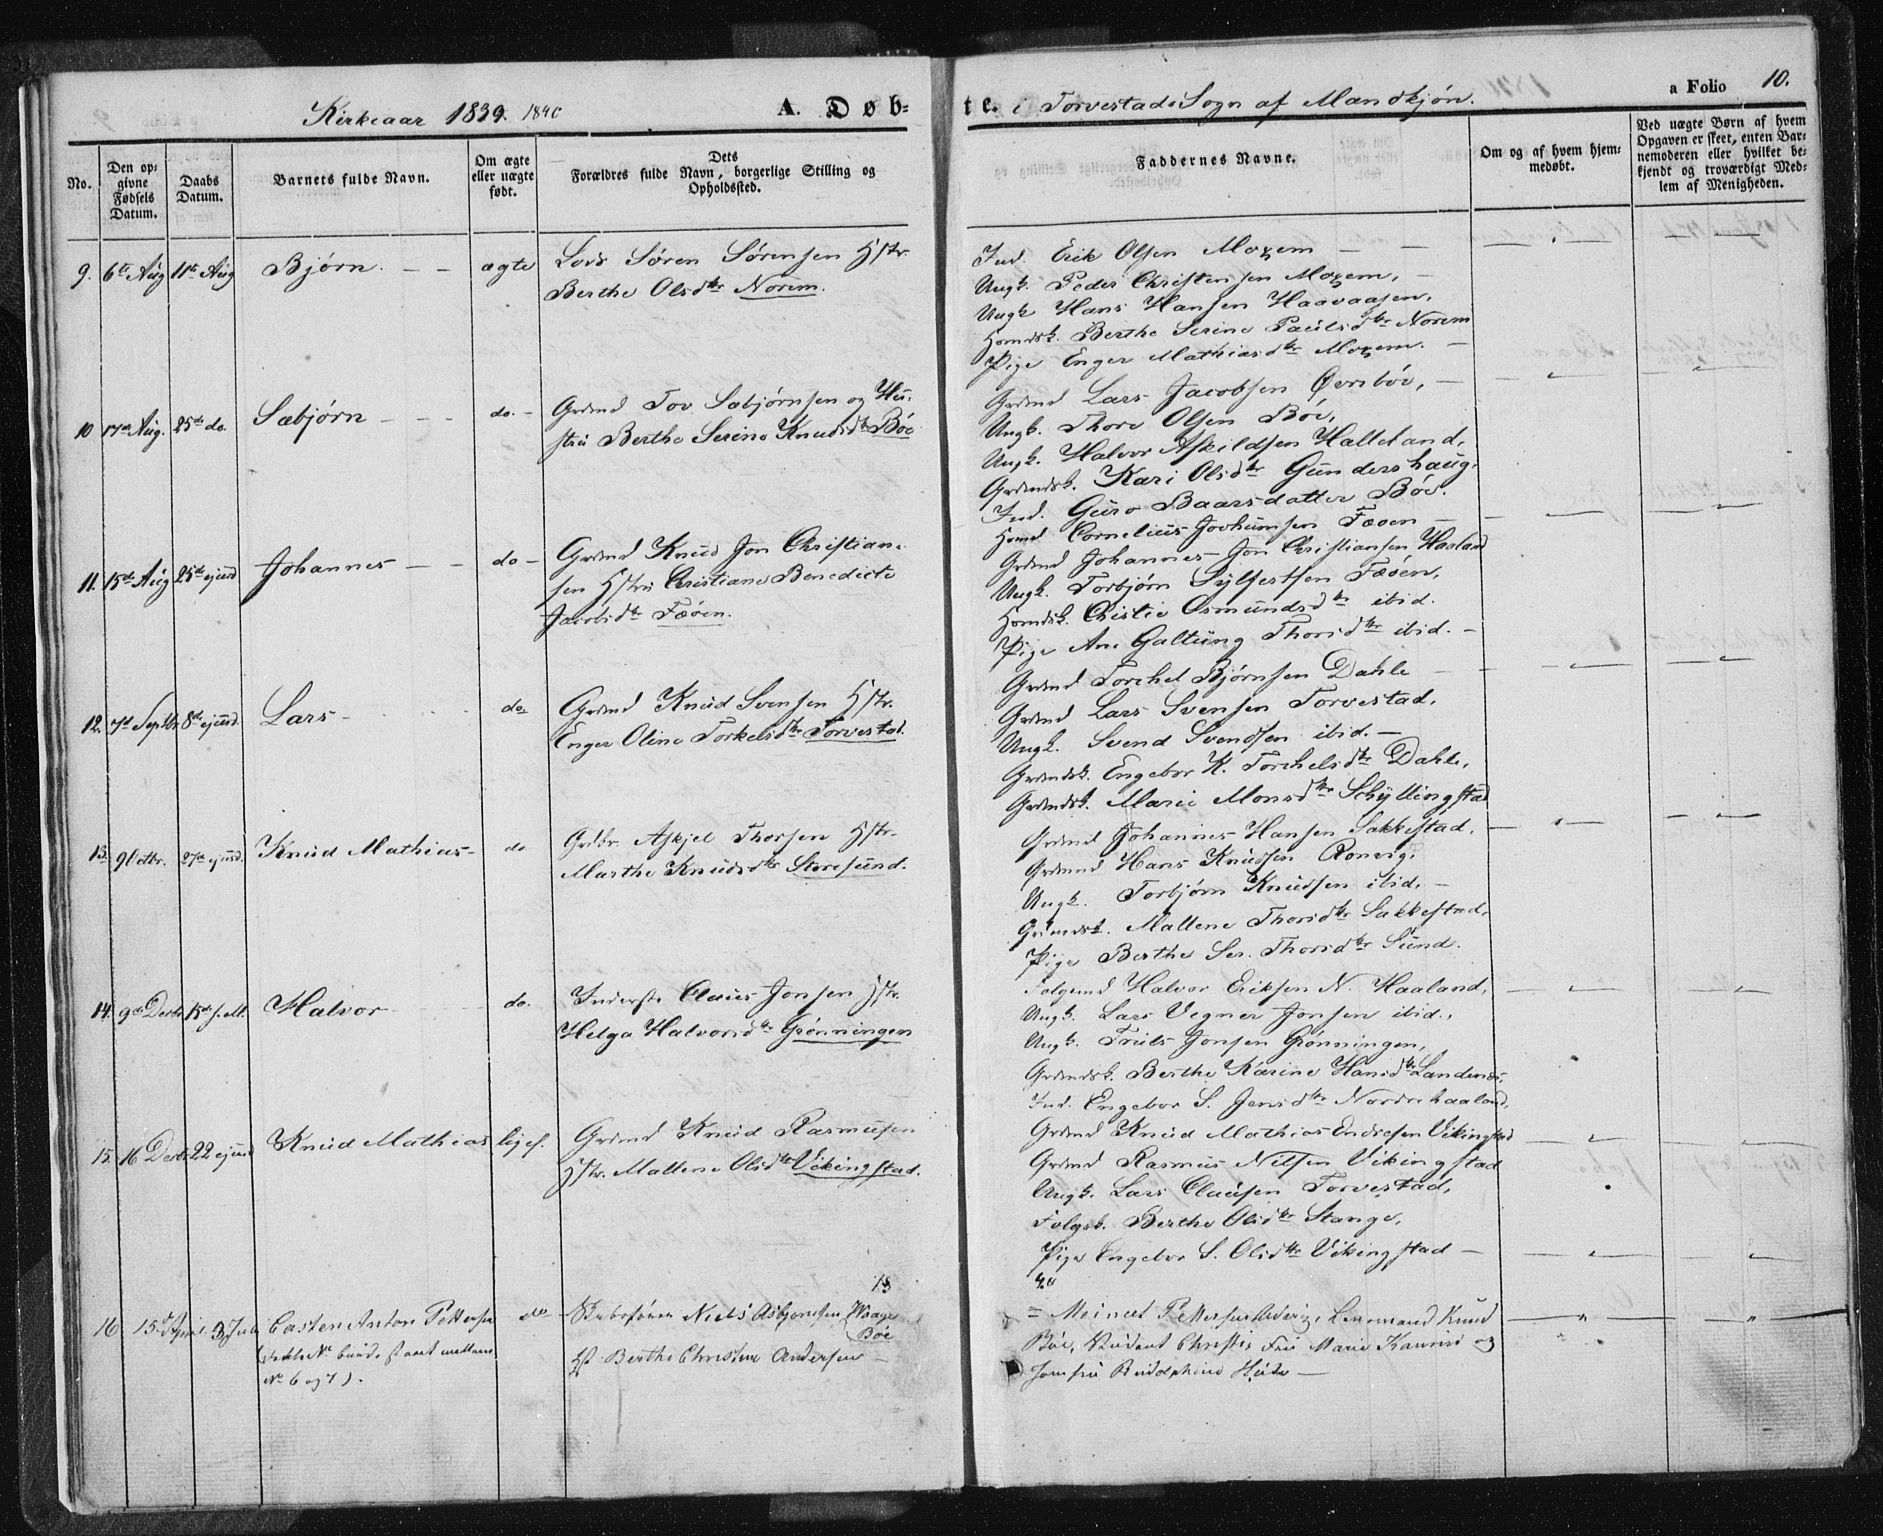 Kirkeaar 1839. 1840
A. Døb-
te. i Torvestads Sogn af Mandkjøn.
a Folio 10.
No.
Den op-
givne
Fødsels
Datum.
Daabs
Datum.
Barnets fulde Navn.
Om ægte
eller uægte
født.
Dets
Forældres fulde Navn, borgerlige Stilling og
Opholdssted.
Faddernes Navne.
Om og af hvem hjem-
medøbt.
Ved uægte Børn af hvem
Opgaven er skeet, enten Bar-
nemoderen eller hvilket be-
kjendt og troværdigt Med-
lem af Menigheden.
9. 6te Aug 11te Aug Bjørn. ægte
Lods Søren Sørensen Hstr.
Berthe Olsdtr Norem.
Ind. Erik Olsen
Ungk. Peder Christensen
Ungk Hans Hansen Haavaasen,
Berthe Serine Paulsdtr Norem
Pige Enger Mathiasdtr
10 17de Aug. 25de do. Sæbjørn do.
Grdmd Tov Sæbjørnsen og Hu-
stru Berthe Serine Knudsdtr Bøe
Grdmd Lars Jacobsen Øvrebøe,
Ungk. Thore Olsen Bøe,
Ungk. Halvor Askildsen Halleland,
Grdmdsk. Kari Olsdtr Gundershaug,
Ind. Guro Baarsdatter Bøe.
11. 15de Aug 25de ejusd Johannes do
Grdmd Knud Jon Christian-
sen Hstru Christiane Benedicte
Jacobsdtr Fæøen.
Cornelius Fæøen
Grdmd Johannes Jon Christiansen Haaland
Ungk. Torbjørn Sylfestsen Fæøen,
Christie Osmundsdtr ibid.
Pige Ane Galtung Thorsdtr ibid.
12. 7de Septbr 8de ejusd. Lars do
Grdmd Knud Svensen Hstr.
Enger Oline Torkelsdtr Torvestad.
Grdmd Torchel Bjørnsen Dahle
Grdmd Lars Svensen Torvestad,
Ungk. Svend Svendsen ibid.
Grdmdsk. Engebor K. Torchelsdtr Dahle,
Grdmdsk. Marie Monsdtr Schyllingstad
13. 9 Octbr. 27de ejusd. Knud Mathias do
Grdbr. Askjel Thorsen Hstr.
Marthe Knudsdtr Storesund.
Grdmd Johannes Hansen Sakkestad,
Grdmd Hans Knudsen
Ungk. Torbjørn Knudsen ibid,
Grdmdsk. Mallene Thorsdtr Sakkestad,
Pige Berthe Ser. Thorsdtr Sund.
14. 9de Decbr 15de s. M. Halvor do.
Inderste Claus Jonsen Hstr.
Helga Halvorsdtr Grønningen
Folgemd Halvor Eriksen N. Haaland,
Ungk. Lars Vegner Jonsen ibid.,
Ungk. Truls Jonsen Grønningen,
Grdmdsk. Berthe Karine Hansdtr Landenæs,
Ind. Engebor S. Jensdtr Nordrehaaland,
15. 16 Decbr 22 ejusd Knud Mathias ligel.
Grdmd Knud Rasmusen
Hstr. Mallene Olsdtr Vikingstad.
Grdmd Knud Mathias Endresen Vikingstad
Grdmd Rasmus Nilsen Vikingstad
Ungk. Lars Clausen Torvestad,
Folgek. Berthe Olsdtr Stange,
Pige Engebor S. Olsdtr Vikingstad
16 15de April. 3 Juli Casten Anton Pettersen do
(dette No burde staaet mellem
No 6 og 7).
Niels Asbjørnsen Waage
Bøe
Hst Berthe Christine Andersen
Meinert Pettersen Lensmand Knud
Bøe, Student Christie, Fru Marie og
Jomfru Rudolphine